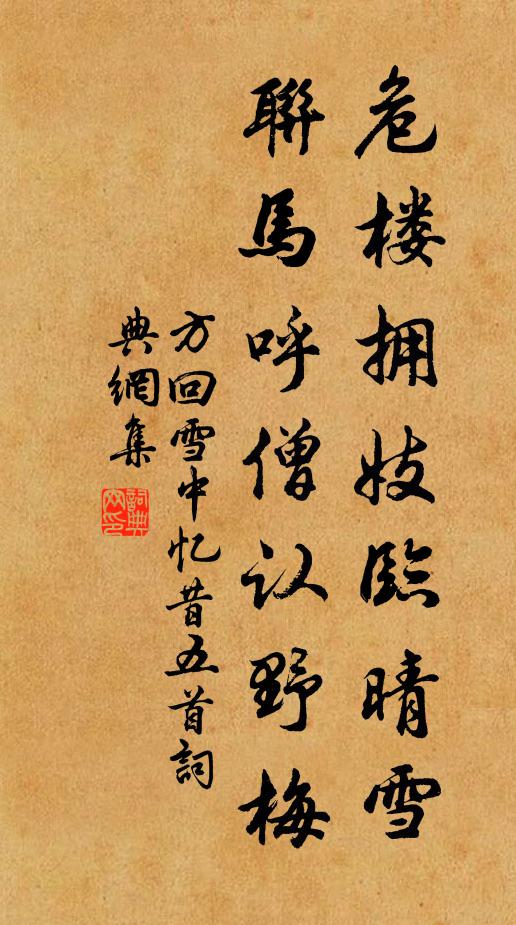 危楼拥妓臨晴雪
聯馬呼僧认野梅
方回雪中忆昔五首詞
典網集
詞典网印